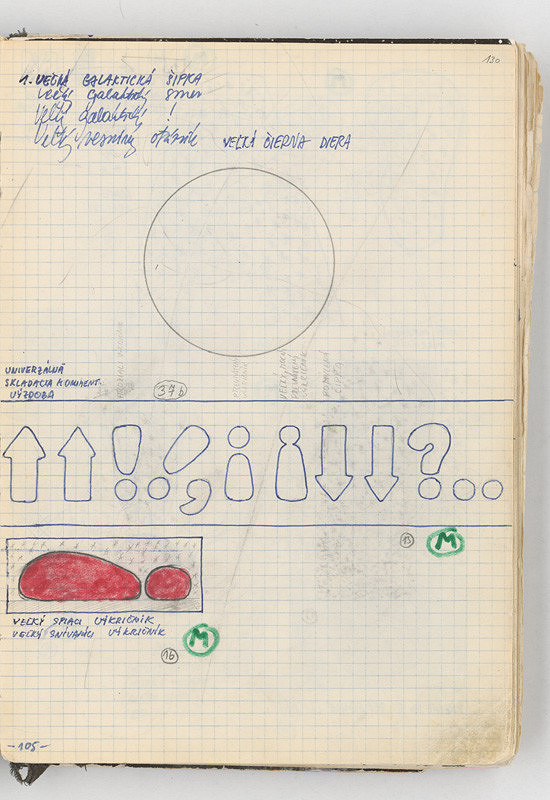 130
1. VEĽKÁ GALAKTICKÁ ŠÍPKA
Veľký galaktický smer
Veľký Galaktický !
Veľký vesmírny otáznik VEĽKÁ ČIERNA DIERA
UNIVERZÁLNA
SKLADACIA KOMENT.
VÝZDOBA
37b
13 M
VEĽKÝ SPIACI VÝKRIČNÍK
VEĽKÝ SNÍVAJÚCI VÝKRIČNÍK
M
16
-105-